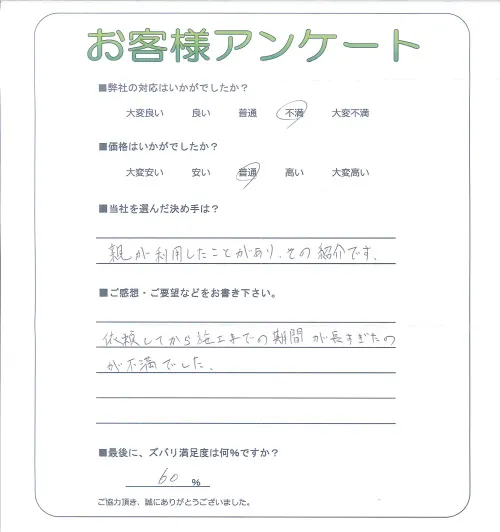 お客様アンケート
■弊社の対応はいかがでしたか？
大変良い 良い 普通 不満 大変不満
■価格はいかがでしたか？
大変安い 安い 普通 高い 大変高い
■当社を選んだ決め手は？
親が利用したことがあり、その紹介です。
■ご感想・ご要望などをお書き下さい。
依頼してから施工までの期間が長すぎたの
が不満でした。
■最後に、ズバリ満足度は何％ですか？
60 ％
ご協力頂き、誠にありがとうございました。